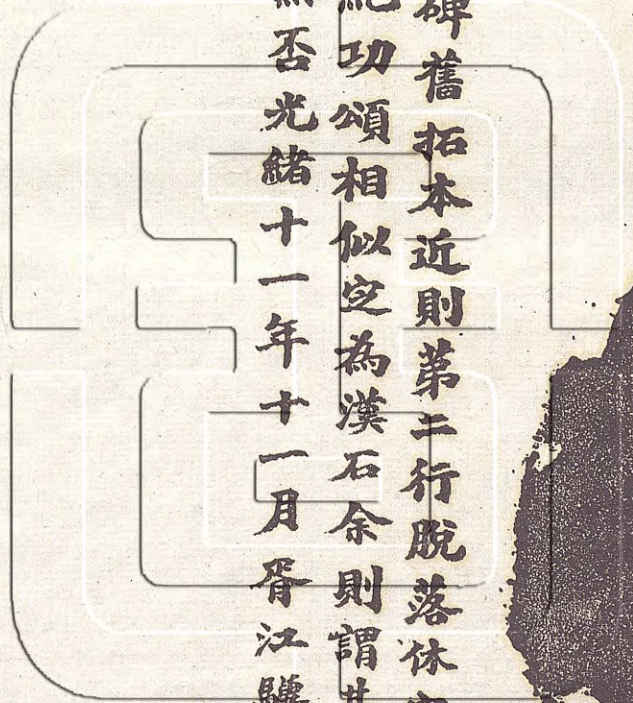 碑舊拓本近則第二行脫落休
紀功頌相似定為漢石余則謂其
然否光緒十一年十一月胥江驄